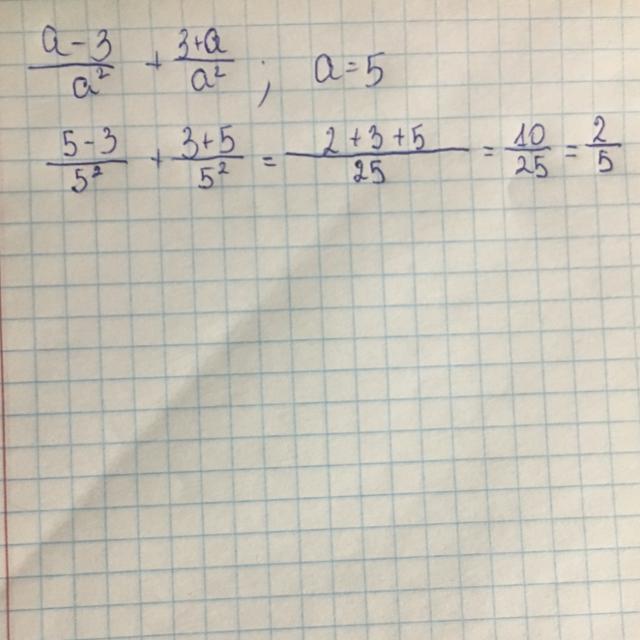 a-3/a² + 3+a/a² ; a=5
5-3/5² + 3+5/5² = 2+3+5/25 = 10/25 = 2/5